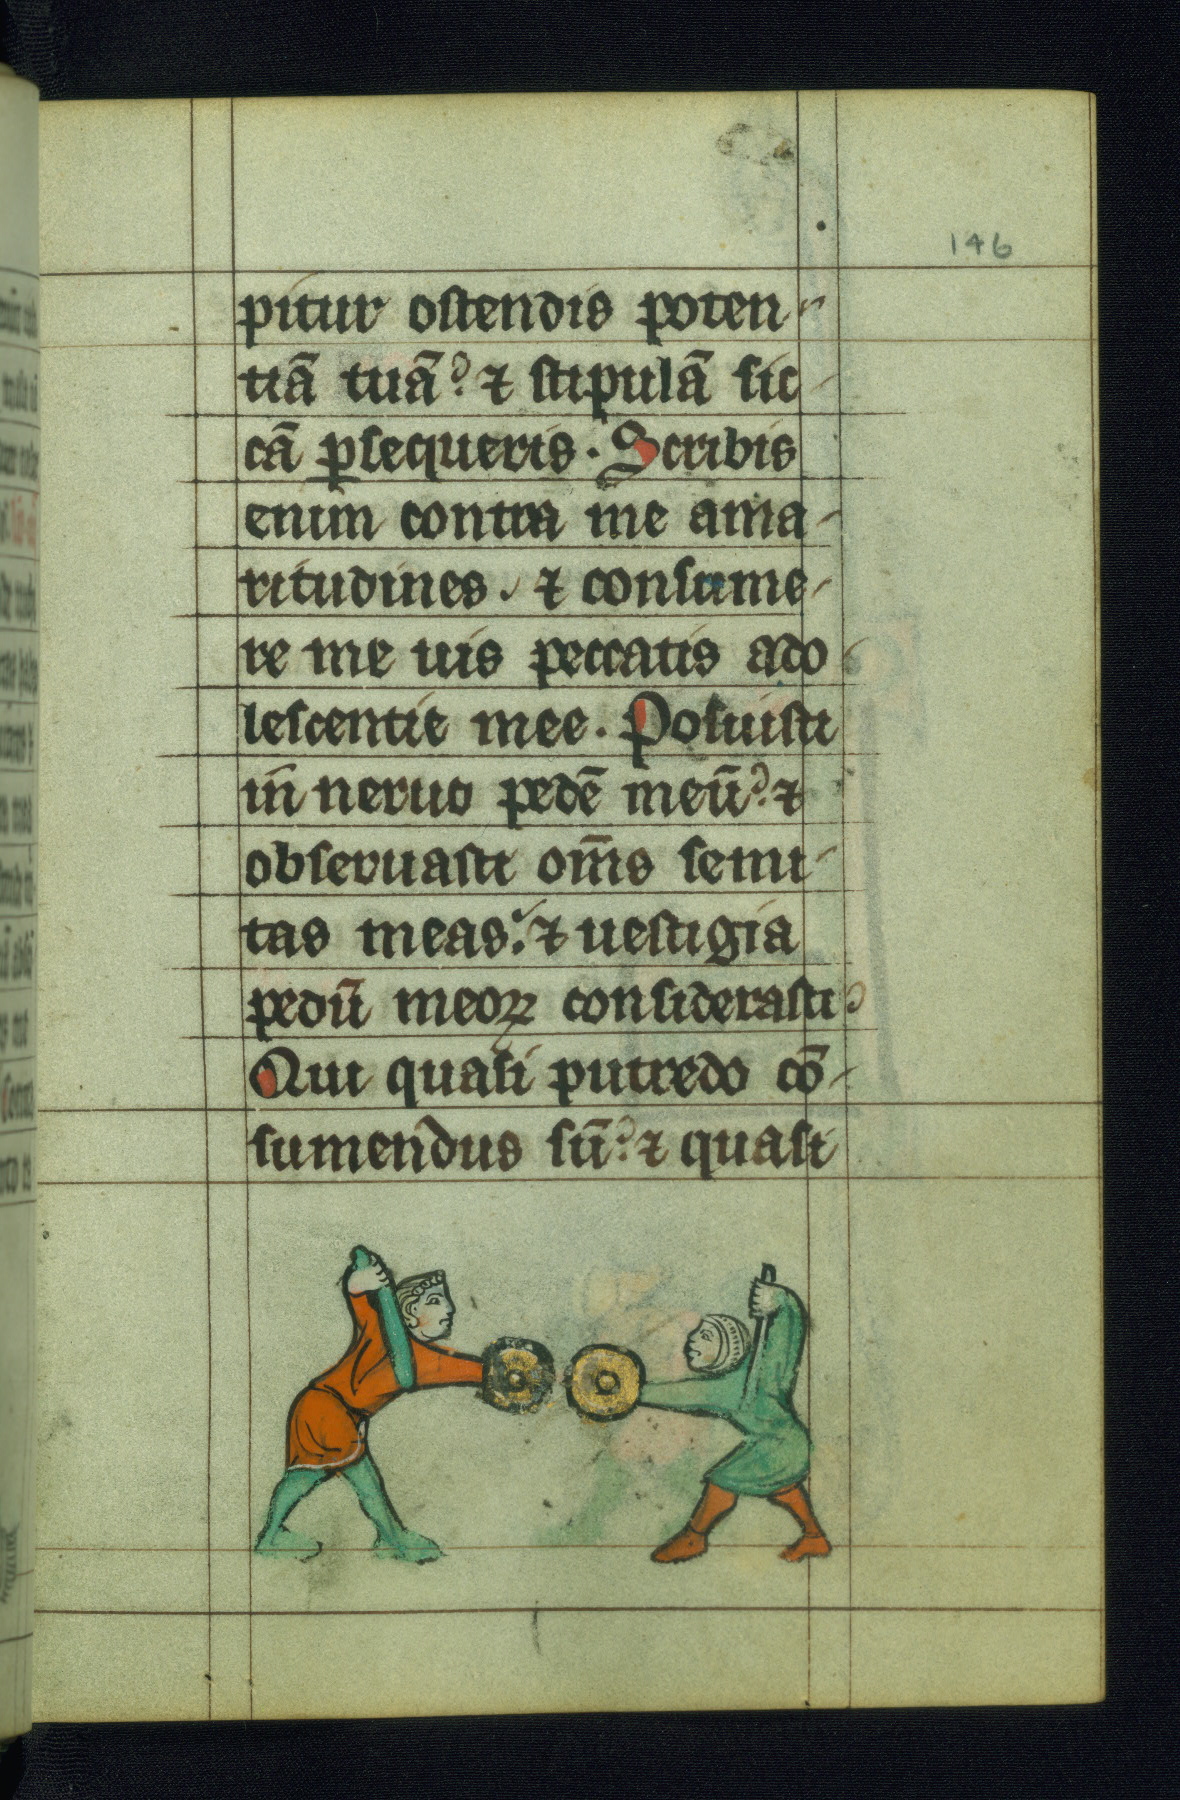 146
pitur ostendis poten-
tiā tuā? ⁊ stipulā sic-
cā ꝑsequeris. Scribis
enim contra me ama-
ritudines. ⁊ consume-
re me uis peccatis ado
lescentie mee. Posuisti
in neruo pedē meū? ⁊
obseruasti om̄s semi-
tas meas. ⁊ uestigia
pedū meoꝝ considerasti
Qui quasi putredo cō-
sumendus sū? ⁊ quasi